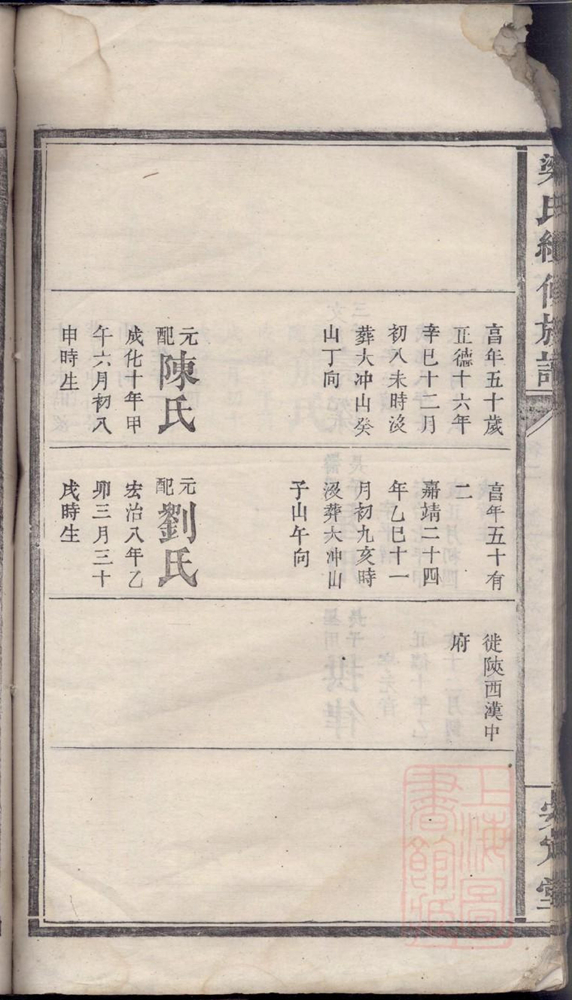 氏續修族譜
高年五十歲
正德十六年
辛巳十二月
初八未時沒
葬大冲山癸
山丁向
元配陳氏
成化十年甲
午六月初八
申時生
高年五十有
二
嘉靖二十四
年乙巳十一
月初九亥時
沒葬大冲山
子山午向
元配劉氏
宏治八年乙
卯三月三十
戌時生
徙陝西漢中
府
定堂
上海圖
書館藏